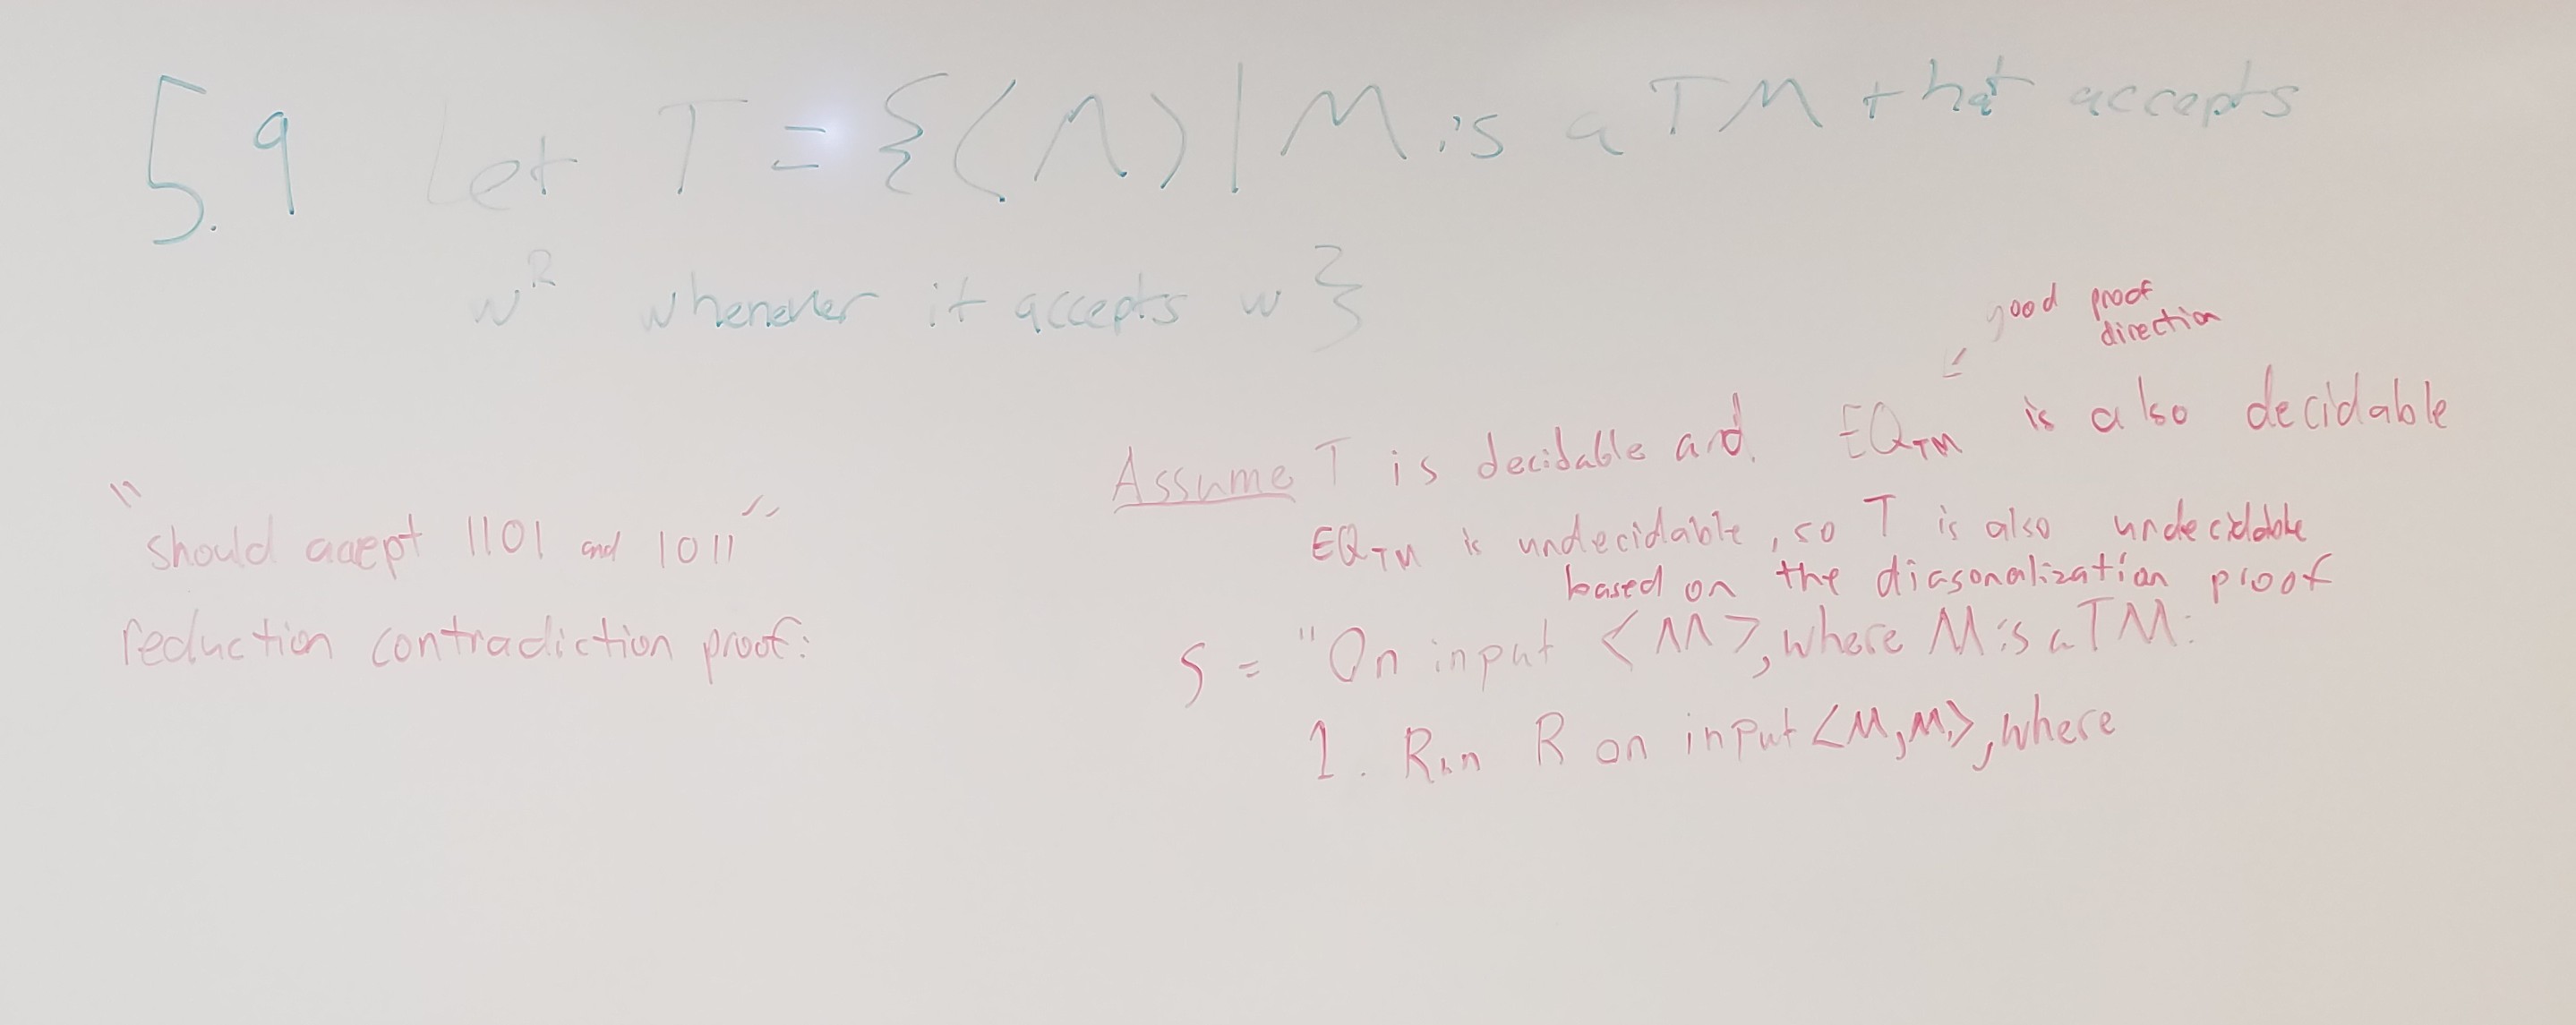 5.9 Let T = {⟨M⟩ | M is a TM that accepts
w^R whenever it accepts w}
good proof
direction
Assume T is decidable and EQ_TM is also decidable
EQ_TM is undecidable, so T is also undecidable
based on the diagonalization proof
"should accept 1101 and 1011"
reduction contradiction proof:
S = "On input <M>, where M is a TM:
1. Run R on input <M, M₁>, where